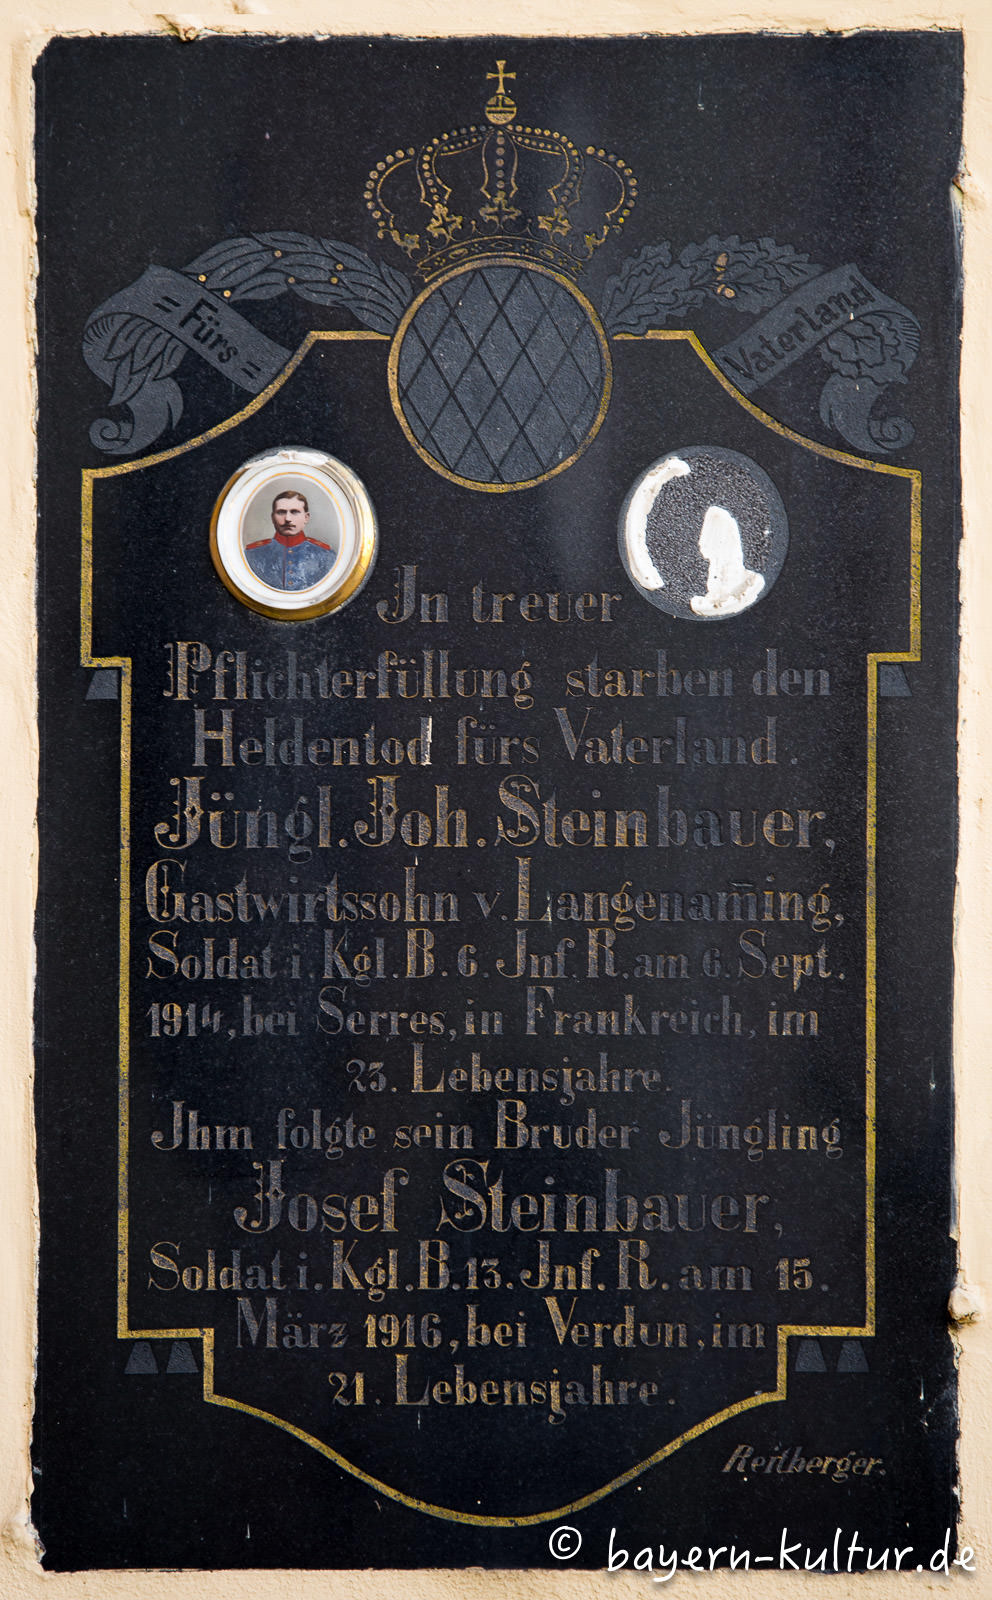 = Fürs =
Vaterland
Jn treuer
Pflichterfüllung starben den
Heldentod fürs Vaterland.
Jüngl. Joh. Steinbauer,
Gastwirtssohn v. Langenam̅ing,
Soldat i. Kgl. B. 6. Jnf. R. am 6. Sept.
1914, bei Serres, in Frankreich, im
23. Lebensjahre.
Jhm folgte sein Bruder Jüngling
Josef Steinbauer,
Soldat i. Kgl. B. 13. Jnf. R. am 15.
März 1916, bei Verdun, im
21. Lebensjahre.
Reitberger.
© bayern-kultur.de